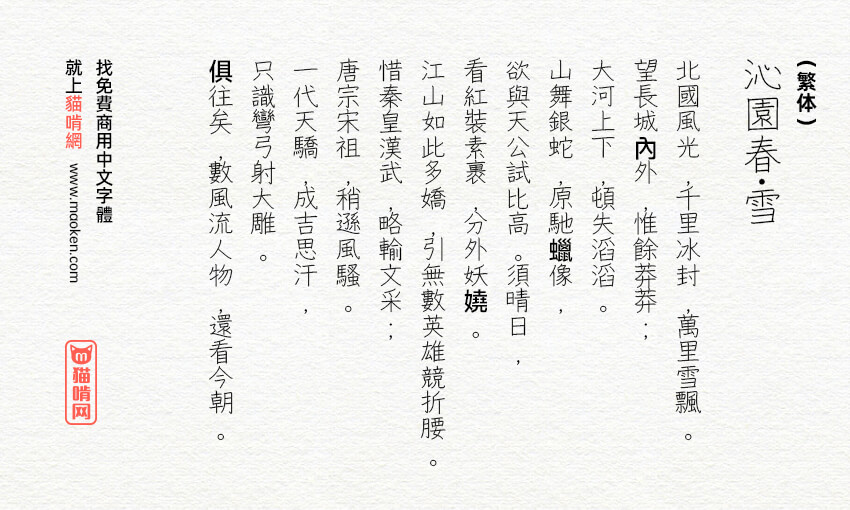 (繁体)
沁園春·雪
北國風光,千里冰封,萬里雪飄。
望長城內外,惟餘莽莽;
大河上下,頓失滔滔。
山舞銀蛇,原馳蠟像,
欲與天公試比高。須晴日,
看紅裝素裹,分外妖嬈。
江山如此多嬌,引無數英雄競折腰。
惜秦皇漢武,略輸文采;
唐宗宋祖,稍遜風騷。
一代天驕,成吉思汗,
只識彎弓射大雕。
俱往矣,數風流人物,還看今朝。
找免費商用中文字體
就上貓啃網 www.mooken.com
猫啃网